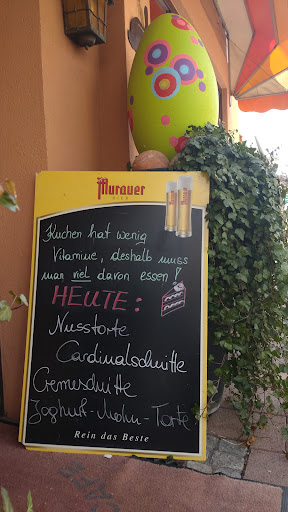 Murauer
BIER
Kuchen hat wenig
Vitamine, deshalb muss
man viel davon essen!
HEUTE:
Nusstorte
Cardinalschnitte
Cremeschnitte
Joghurt-Mohn-Torte
Rein das Beste
CAFE